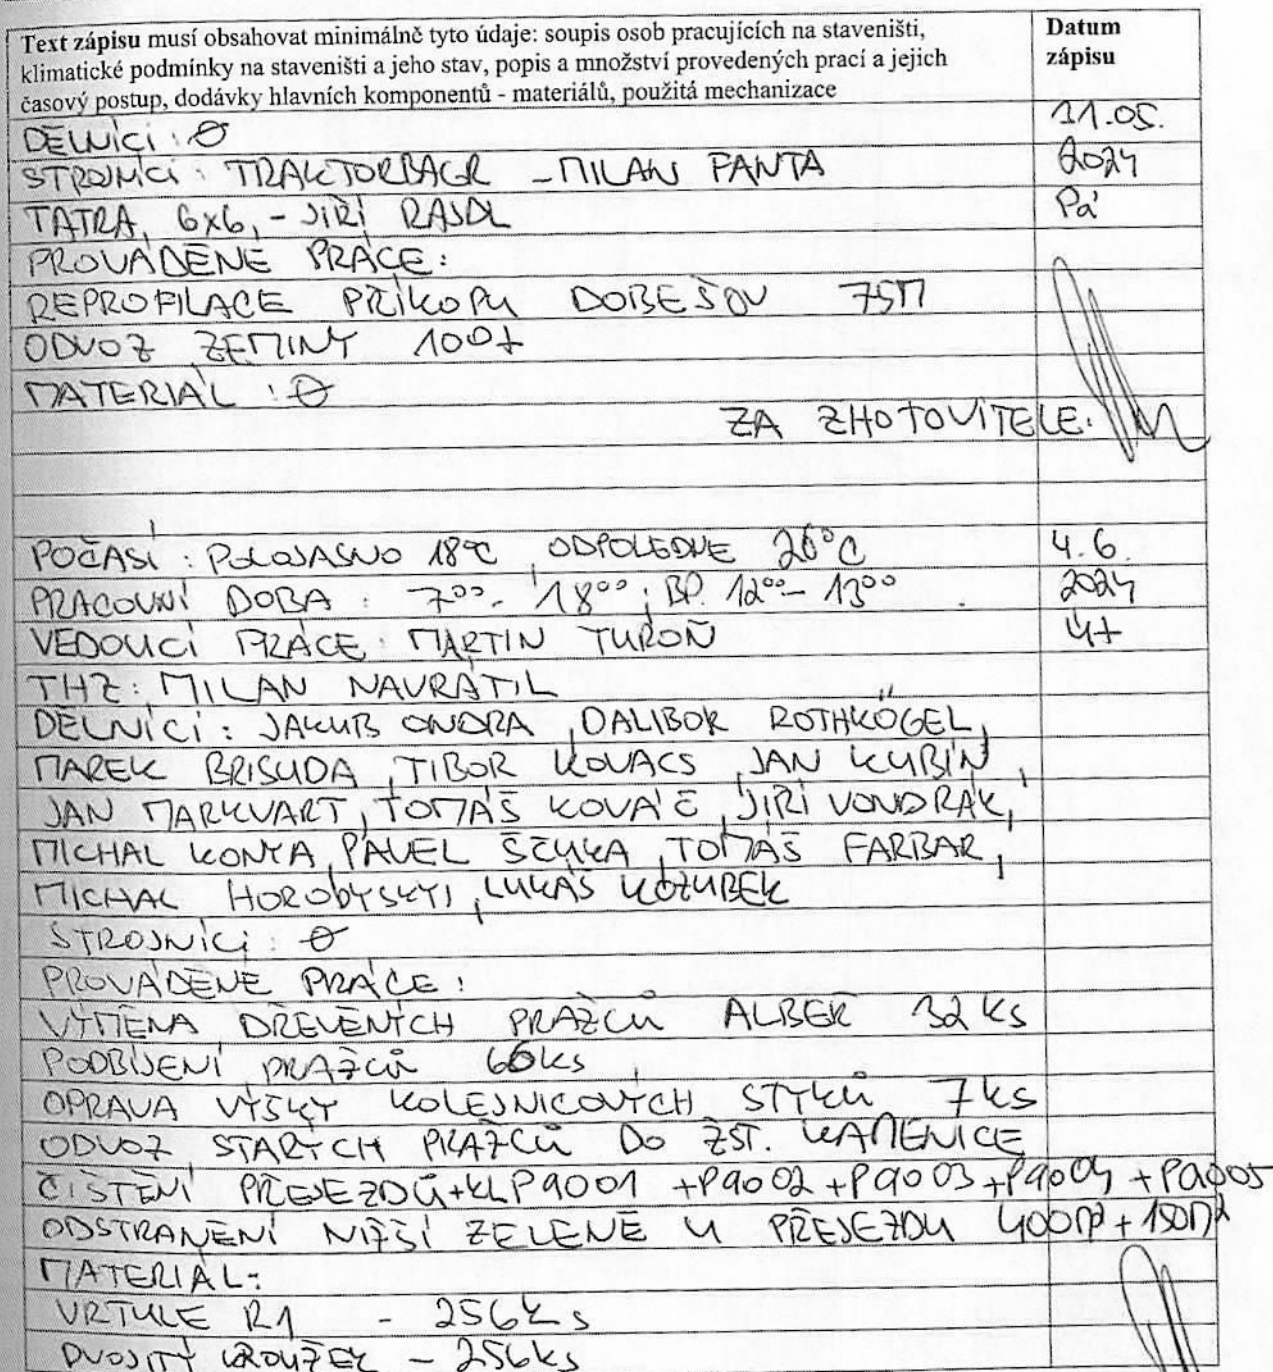 Text zápisu musí obsahovat minimálně tyto údaje: soupis osob pracujících na staveništi,
klimatické podmínky na staveništi a jeho stav, popis a množství provedených prací a jejich
časový postup, dodávky hlavních komponentů - materiálů, použitá mechanizace
Datum
zápisu
DĚLNÍCI : ∅
31.05.
STROJNÍCI : TRAKTORBAGR - MILAN PANTA
2024
TATRA, 6x6, - JIŘÍ RAJDL
Pá
PROVÁDĚNÉ PRÁCE:
REPROFILACE PŘÍKOPU DOBEŠOV 75M
ODVOZ ZEMINY 100t
MATERIÁL : ∅
ZA ZHOTOVITELE:
POČASÍ : POLOJASNO 18°C, ODPOLEDNE 26°C
4.6.
PRACOVNÍ DOBA : 7⁰⁰ - 18⁰⁰ ; BP. 12⁰⁰ - 13⁰⁰
2024
VEDOUCÍ PRÁCE: MARTIN TUROŇ
Út
THZ: MILAN NAVRÁTIL
DĚLNÍCI : JAKUB ONDRA, DALIBOR ROTHKÖGEL,
MAREK BRISUDA, TIBOR KOVACS, JAN KUBÍN,
JAN MARKVART, TOMÁŠ KOVÁČ, JIŘÍ VONDRÁK,
MICHAL KONYA, PAVEL ŠČUKA, TOMÁŠ FARBAR,
MICHAL HOROBYSKYI, LUKÁŠ KOZUBEK
STROJNÍCI : ∅
PROVÁDĚNÉ PRÁCE :
VÝMĚNA DŘEVĚNÝCH PRAŽCŮ ALBEŘ 32 ks
PODBÍJENÍ PRAŽCŮ 66ks
OPRAVA VÝŠKY KOLEJNICOVÝCH STYKŮ 7ks
ODVOZ STARÝCH PRAŽCŮ DO ŽST. KAMENICE
ČIŠTĚNÍ PŘEJEZDŮ+KL P9001 +P9002+P9003+P9004 + P9005
ODSTRANĚNÍ NIŽŠÍ ZELENĚ U PŘEJEZDU 400M²+150M²
MATERIÁL:
VRTULE R1 - 256ks
DVOJITÝ KROUŽEK - 256ks